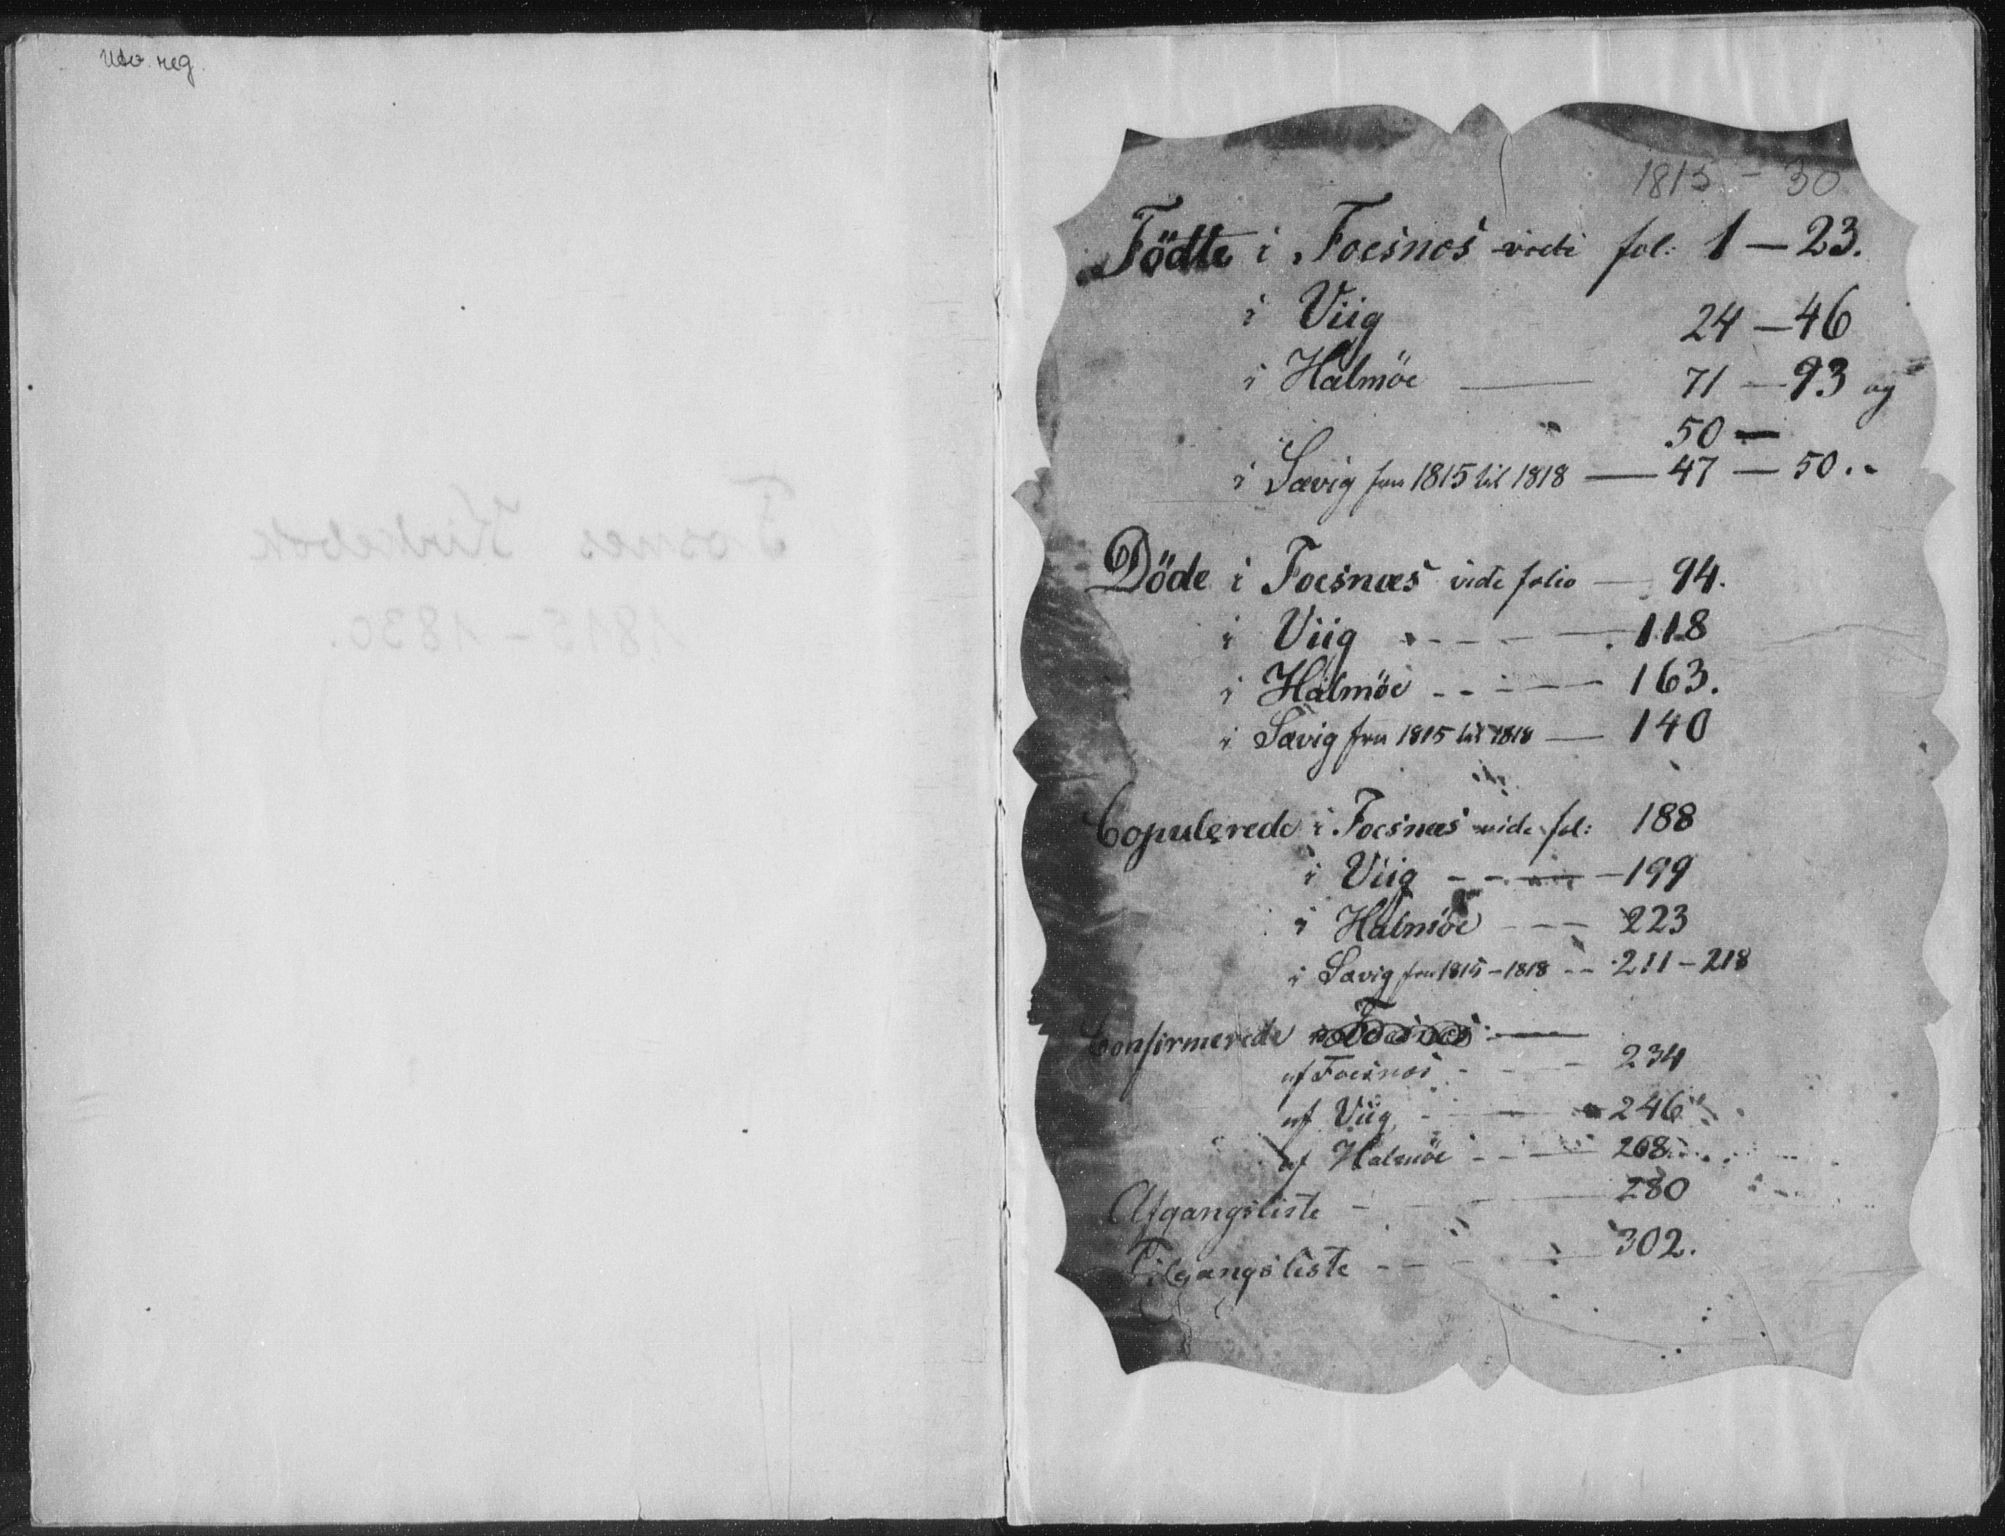 Utv. reg.
Fosnes Kirkebok
1815 - 1830.
1815 - 30
Födte i Foesnæs vide fol: 1 — 23.
i Viig 24 — 46
i Halmöe — 71 — 93 og
50 —
i Sævig fra 1815 til 1818 — 47 — 50..
Döde i Foesnæs vide folio — 94.
i Viig - - - - — 118
i Halmöe - - - — 163.
i Sævig fra 1815 til 1818 — 140
Copulerede i Foesnæs vide fol: 188
i Viig - - — — 199
i Halmöe - - - 223
i Sævig fra 1815 - 1818 - - 211 - 218
Confirmerede i Foesnæs: —
af Foesnæs - - - - 234
af Viig - — — 246
af Halmöe - - - — 268
Afgangsliste - - — 280
Tilgangsliste - - - - — 302.